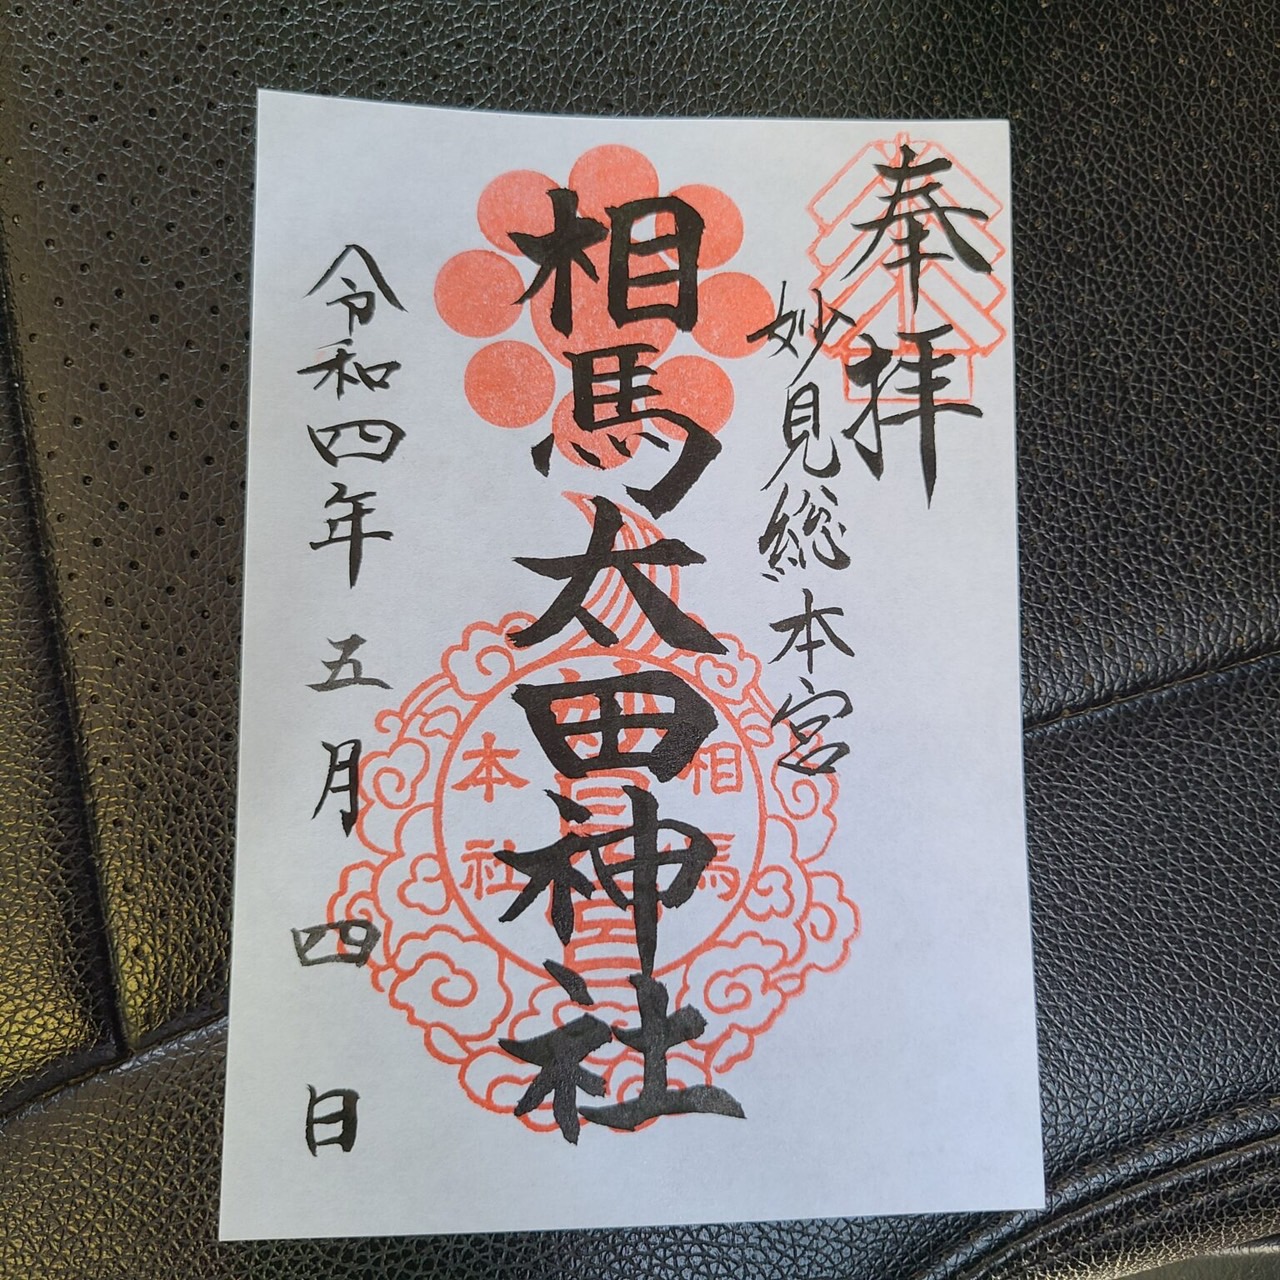 奉拝
妙見総本宮
相馬太田神社
令和四年五月四日
相馬
妙見宮
本社